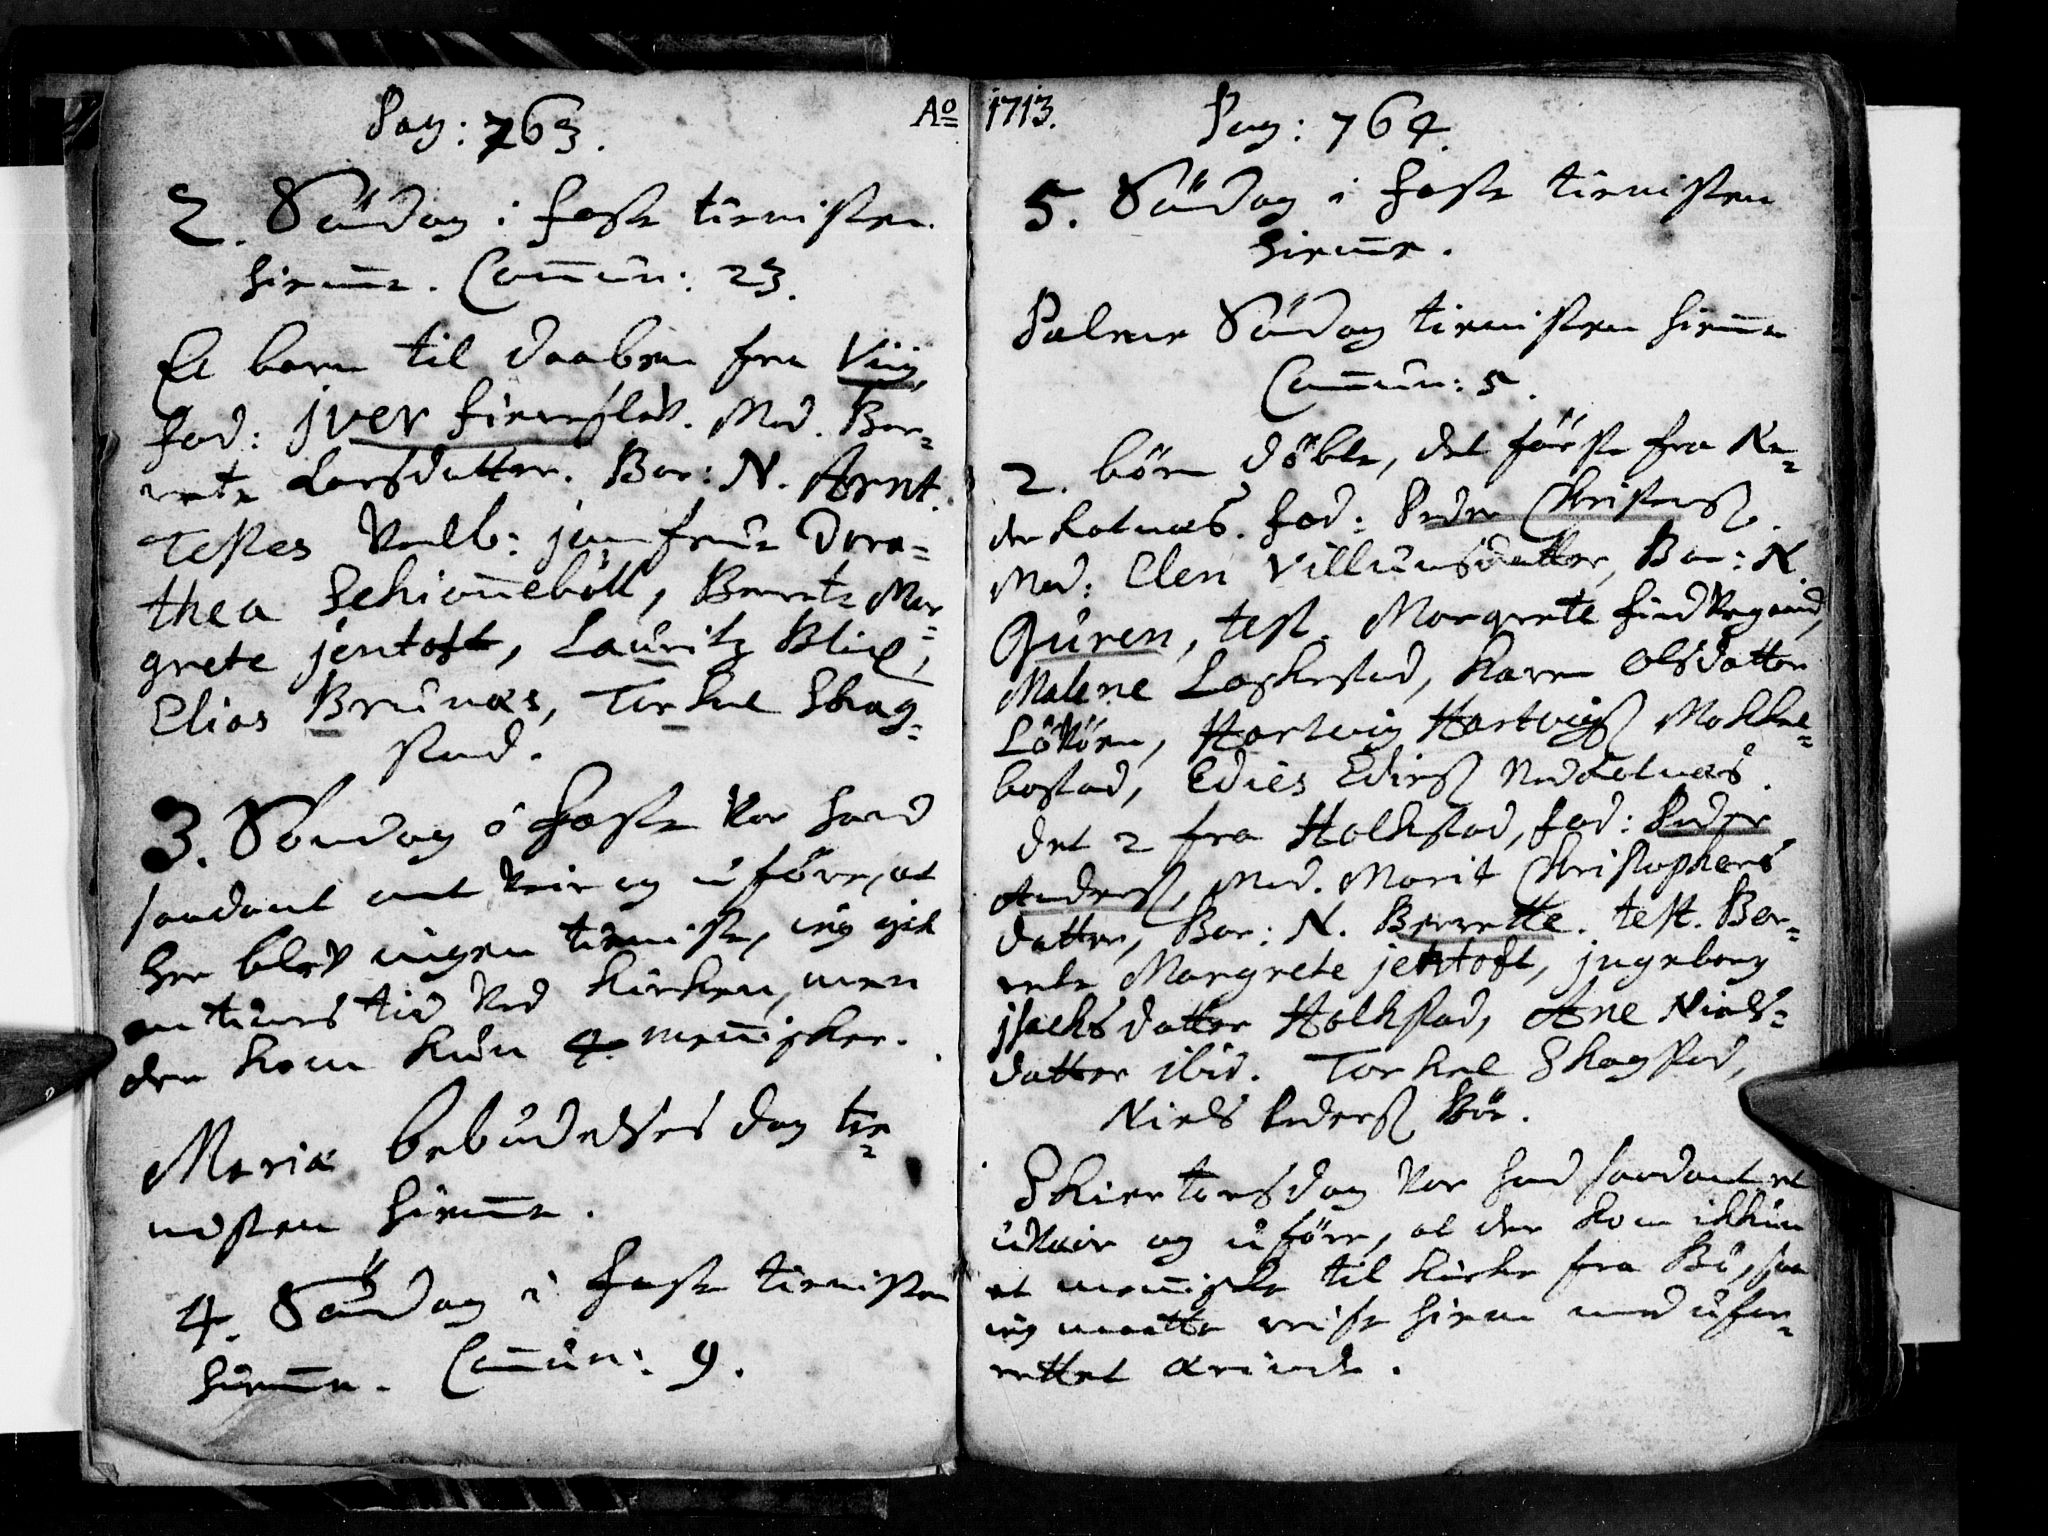 Pag: 763.
Ao
2. Söndag i faste tienisten
hiem̄e. Com̄un: 23.
Et barn til daaben fra Viig,
fad: jver hiemslev. Mod. Ber=
rete Larsdatter. Bar: N. Arnt.
Testes Velb: jumfrue Doro=
thea Schiønnebøll, Berrete Mar=
grete jentoft, Lauritz Blix,
Elias Brunæs, Torkel Skag=
stad.
3. Söndag i faste var haard
saadant ont veir og uføre, at
her blev ingen tieniste, ieg gik
en times tid ved Kirken, men
der kom kun 4 men̄isker.
Mariæ bebudelses dag tie=
nesten hiem̄e.
4. Söndag i faste tienisten
hiem̄e. Com̄un: 9.
1713.
Pag: 764.
5. Söndag i faste tienisten
hiem̄e.
Palme Söndag tienisten hiem̄e
Com̄un: 5.
2. börn döbte, det förste fra Ne=
der Kolnæs. fad: Peder Christenss.
Mod: Elen Villumsdatter, Bar: N.
Guren, test. Margrete Findvegaard,
Malene Laskestad, Karen Olsdatter
Lövöen, Hartvig Hartvigss Mokkel=
bostad, Edies Ediess Ned Kolnæs.
det 2 fra Holkstad, fad: Peder
Anderss, Mod. Marit Christophers
datter, Bar: N. Berrette. test. Ber=
rete Margrete jentoft, jngeborg
jsachs datter Holkstad, Ane Niels=
datter ibid. Torkel Skagstad,
Niels Pederss Böe.
Skiertorsdag var haard saadant et
uveir og uføre, at der kom ikkun
et men̄iske til Kirke fra Bö, saa
ieg maatte reise hiem med ufor=
rettet ærinde.